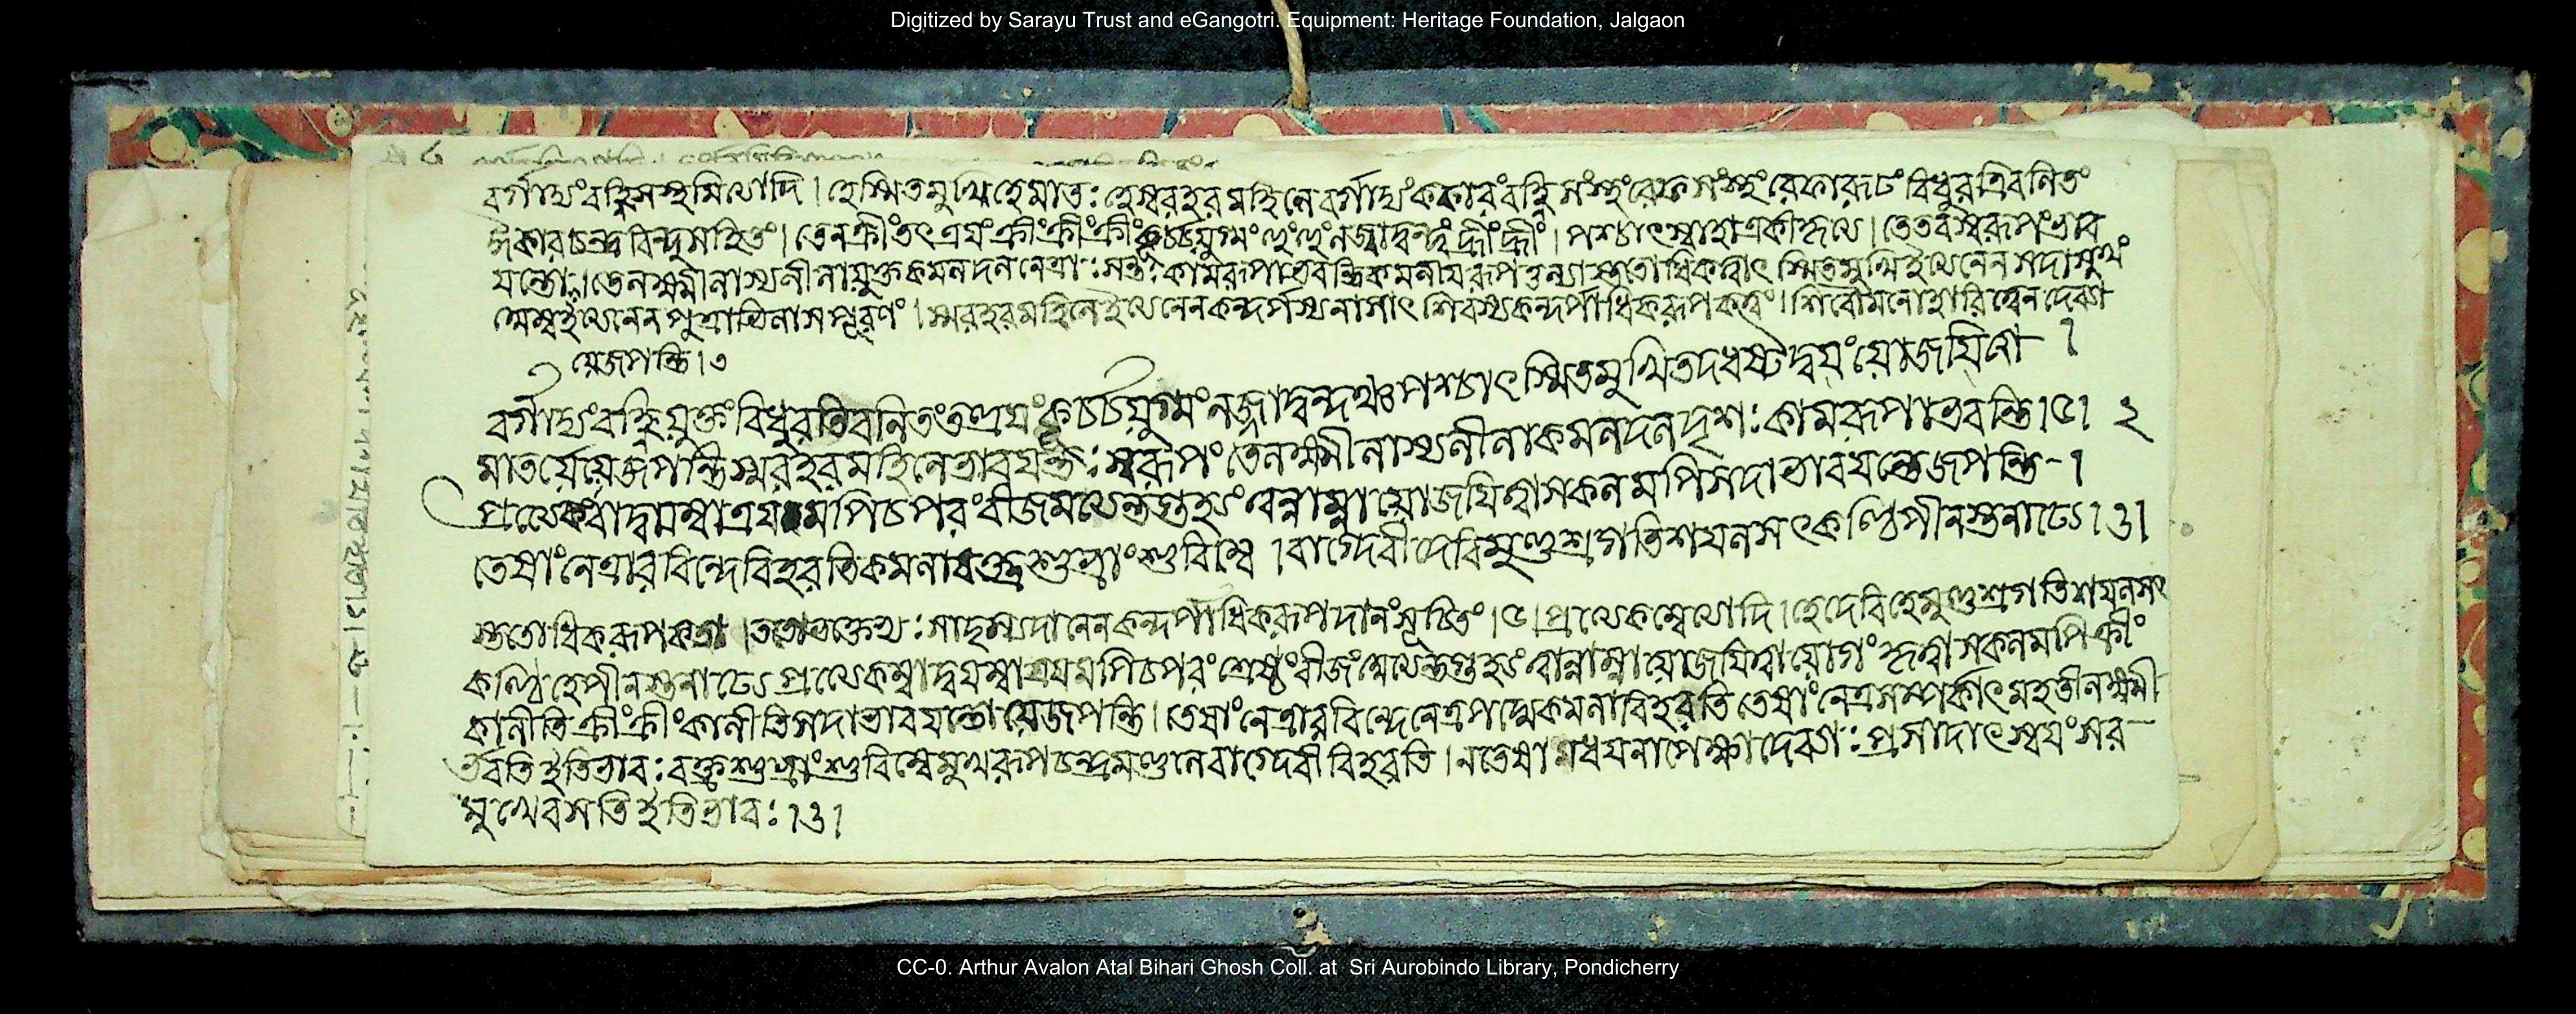 Digitized by Sarayu Trust and eGangotri. Equipment: Heritage Foundation, Jalgaon
বর্গাদ্যং বহ্নিসংস্থমিত্যাদি । হে স্মিতমুখি হে মাতঃ হে স্মরহরমহিলে বর্গাদ্যং ককারং বহ্নিসংস্থং রেফসংস্থং রেফারূঢং বিধুরতিবলিতং
ঈকারচন্দ্রবিন্দুসহিতং । তেন ক্রীং তৎত্রয়ং ক্রীং ক্রীং ক্রীং কূর্চযুগ্মং হূং হূং লজ্জাদ্বন্দ্বং হ্রীং হ্রীং । পশ্চাৎ স্বাহা একীকৃত্য । তে তব স্বরূপং ভাব
য়ন্তো । তে লক্ষ্মীলাস্যলীলাযুক্তকমলদলনেত্রাঃ সন্তঃ কামরূপা ভবন্তি কমনীয়রূপ স্মিতমুখি ইত্যনেন সদা সুখং
ইত্যনেন । স্মরহরমহিলে ইত্যনেন কন্দর্পস্য নাশাৎ শিবস্য কন্দর্পাধিকরূপকত্বং । শিবো মনোহারিত্বেন দেব্যা
যে জপন্তি । ৩
বর্গাদ্যং বহ্নিযুক্তং বিধুরতিবলিতং তত্ত্রয়ং কূর্চযুগ্মং লজ্জাদ্বন্দঞ্চ পশ্চাৎ স্মিতমুখি তদধষ্টদ্বয়ং যোজয়িত্বা ।
মাতর্যে যে জপন্তি স্মরহরমহিলে ভাবয়ন্তঃ স্বরূপং তে লক্ষ্মীলাস্যলীলাকমলদলদৃশঃ কামরূপা ভবন্তি । ৫ । ২
প্রত্যেকং বা দ্বয়ম্বা ত্রয়মপি চ পরং বীজমত্যন্তগুহ্যং ত্বন্নাম্না যোজয়িত্বা সকলমপি সদা ভাবয়ন্তো জপন্তি - ।
তেষাং নেত্রারবিন্দে বিহরতি কমলা বক্ত্রশুভ্রাংশুবিম্বে । বাগ্দেবী দেবি মুণ্ডস্রগতিশয়লসৎকণ্ঠি পীনস্তনাঢ্যে । ৬ ।
স্ততো ধিকরূপকত্বা । সাদৃশ্যদানেন কন্দর্পাধিকরূপদানং সূচিতং । ৫ । প্রত্যেকম্বেত্যাদি । হে দেবি হে মুণ্ডস্রগতিশয়লসৎ
কণ্ঠি হে পীনস্তনাঢ্যে প্রত্যেকম্বা দ্বয়ম্বা ত্রয়মপি চ পরং শ্রেষ্ঠং বীজং অত্যন্তগুহ্যং ত্বন্নাম্না যোজয়িত্বা যোগং কৃত্বা সকলমপি ক্রীং
কালীতি ক্রীং ক্রীং কালীতি সদা ভাবয়ন্তো যে জপন্তি । তেষাং নেত্রারবিন্দে নেত্রপদ্মে কমলা বিহরতি তেষাং নেত্রসম্পর্কাৎ মহতী লক্ষ্মী
র্ভবতি ইতি ভাবঃ বক্ত্রশুভ্রাংশুবিম্বে মুখরূপচন্দ্রমণ্ডলে বাগ্দেবী বিহরতি । ন তেষামধ্যয়নাপেক্ষা দেব্যাঃ প্রসাদাৎ স্বয়ং সর
মুখে বসতি ইতি ভাবঃ । ৬ ।
CC-0. Arthur Avalon Atal Bihari Ghosh Coll. at Sri Aurobindo Library, Pondicherry